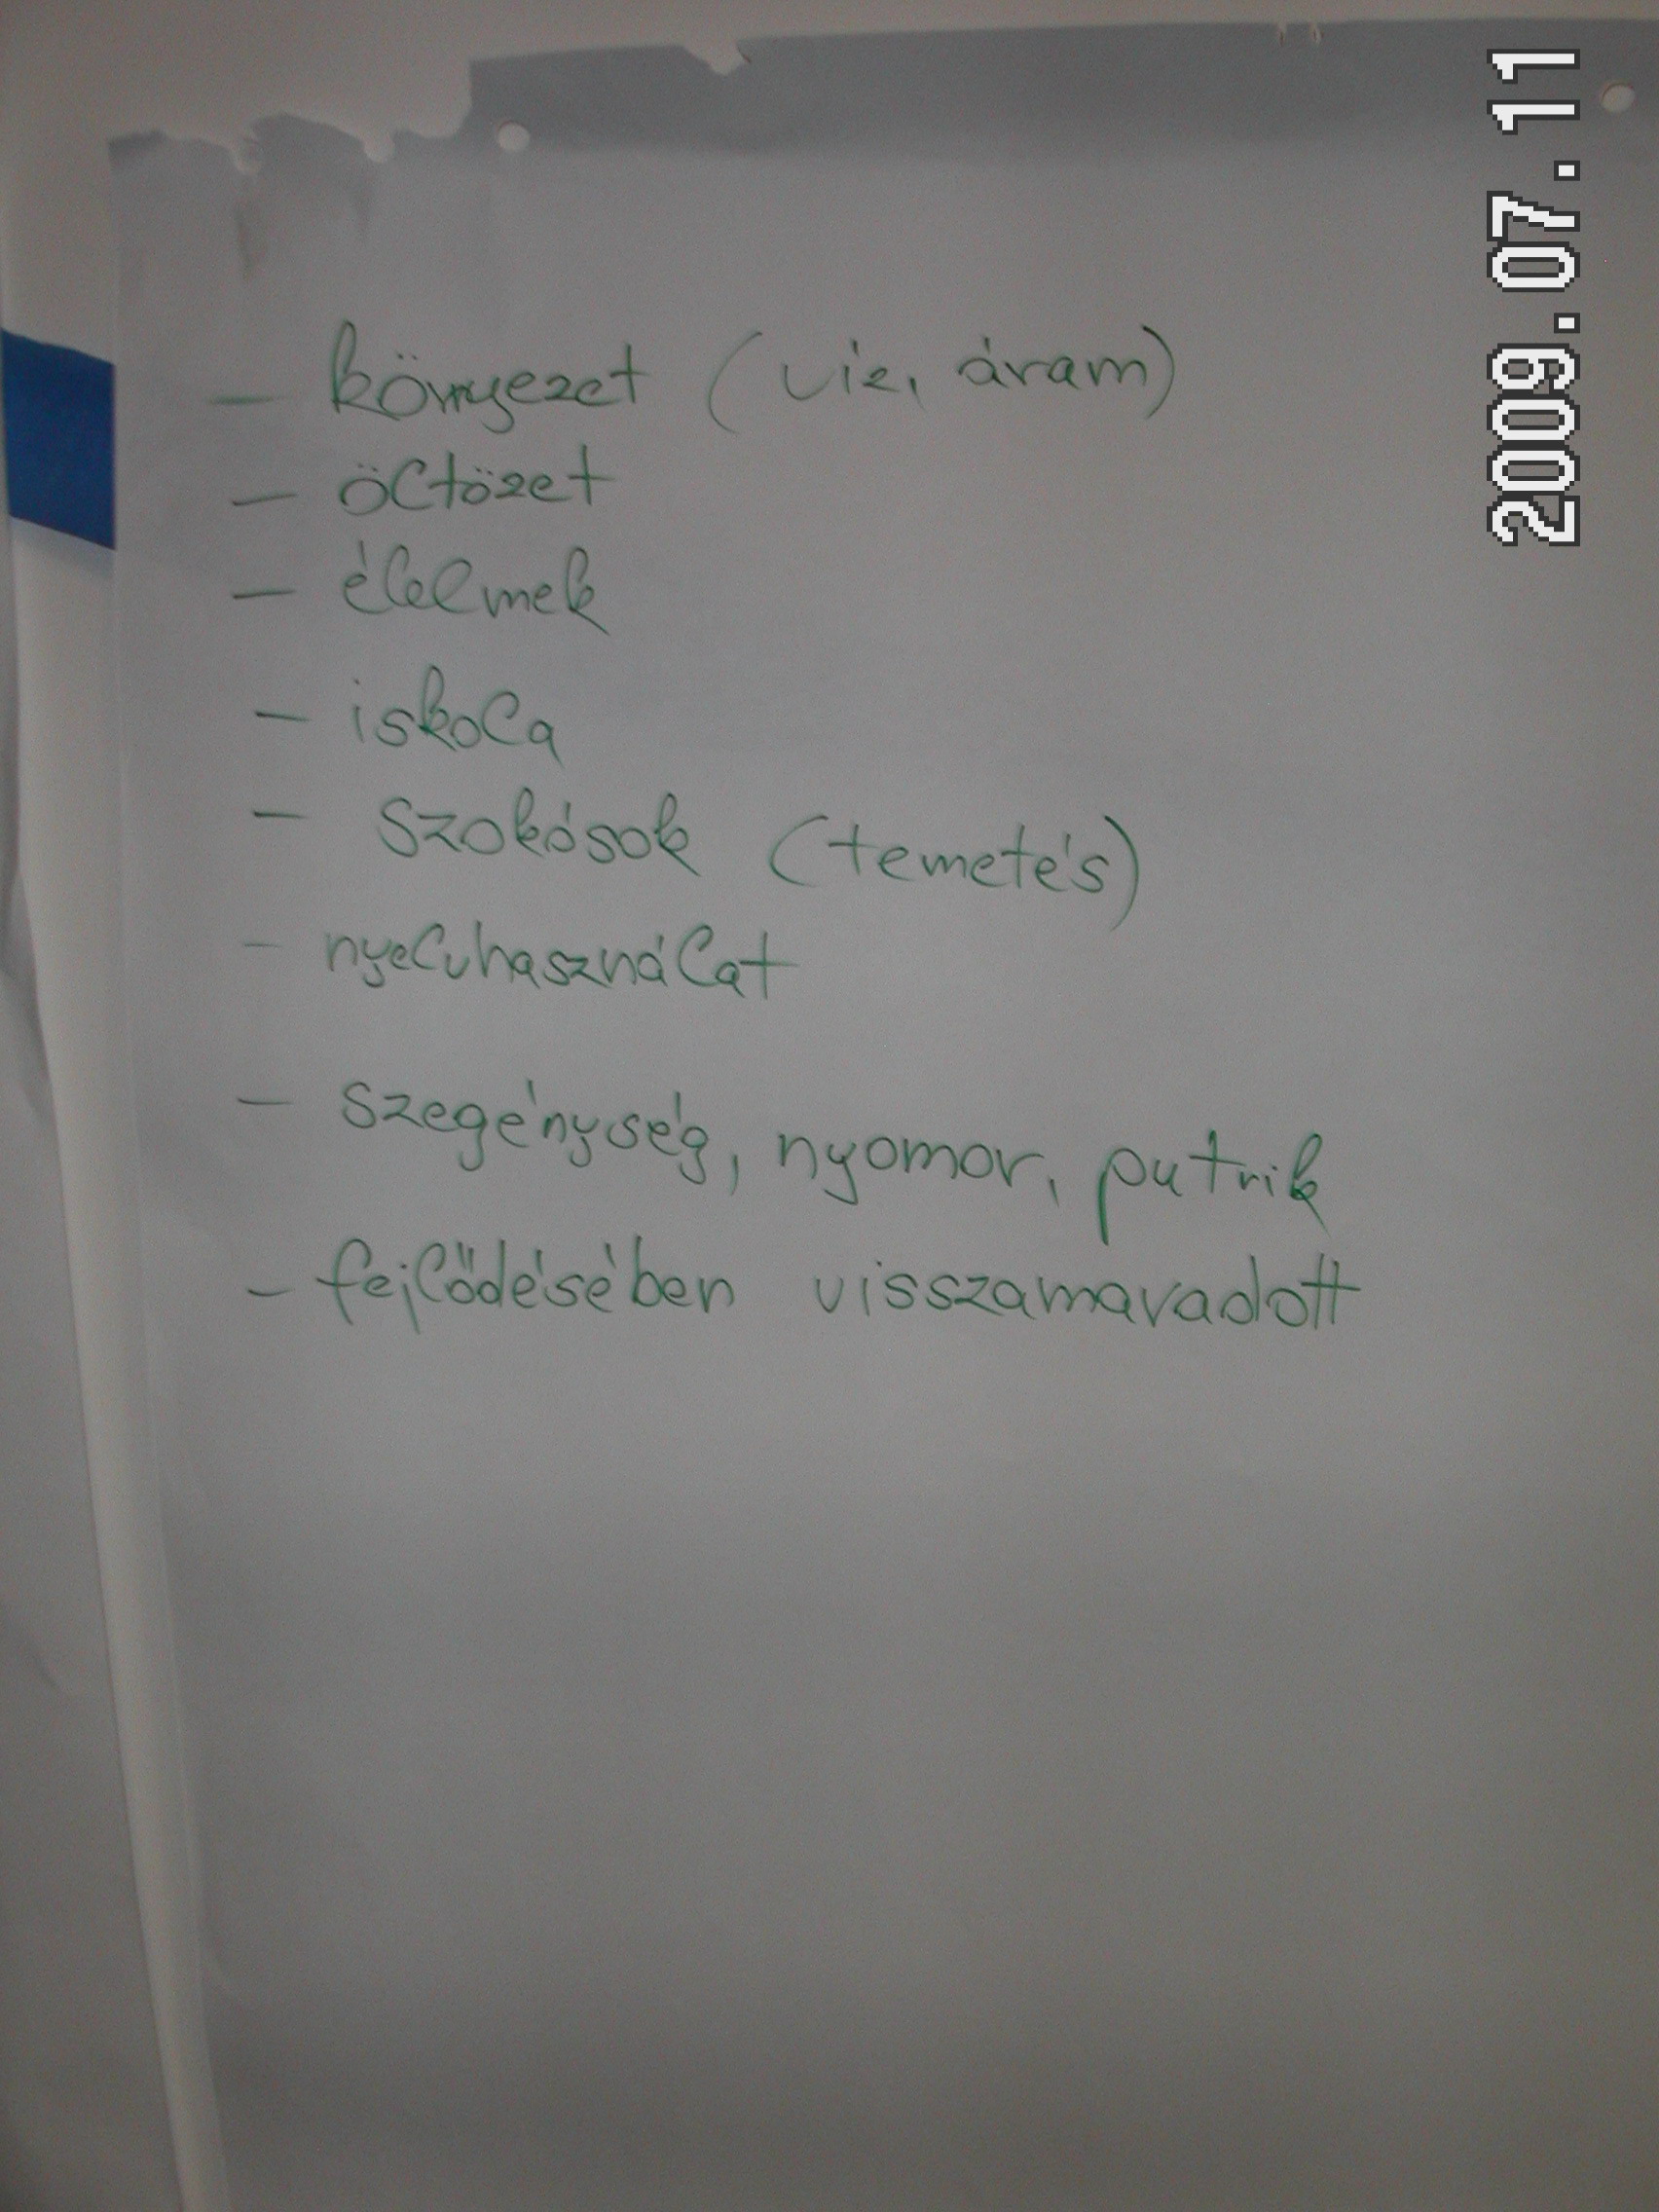 - környezet (víz, áram)
- öltözet
- élelmek
- iskola
- szokások (temetés)
- nyelvhasználat
- szegénység, nyomor, putrik
- fejlődésében visszamaradott
2009.07.11